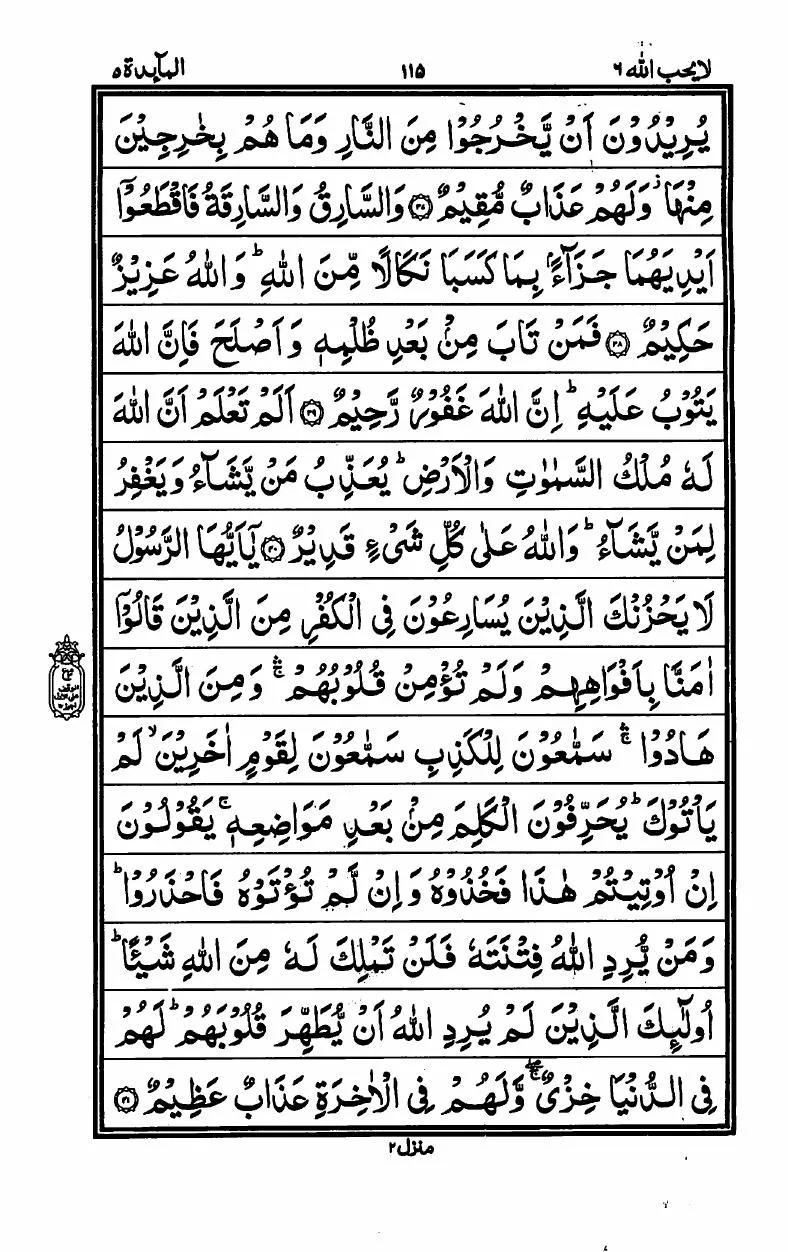 لا يحب الله ٦ ١١٥ المآئدة ٥
يُرِيْدُوْنَ اَنْ يَّخْرُجُوْا مِنَ النَّارِ وَمَا هُمْ بِخٰرِجِيْنَ
مِنْهَا ۫ وَلَهُمْ عَذَابٌ مُّقِيْمٌ ﴿۳۷﴾ وَالسَّارِقُ وَالسَّارِقَةُ فَاقْطَعُوْۤا
اَيْدِيَهُمَا جَزَآءًۢ بِمَا كَسَبَا نَكَالًا مِّنَ اللّٰهِ ؕ وَاللّٰهُ عَزِيْزٌ
حَكِيْمٌ ﴿۳۸﴾ فَمَنْ تَابَ مِنْۢ بَعْدِ ظُلْمِهٖ وَاَصْلَحَ فَاِنَّ اللّٰهَ
يَتُوْبُ عَلَيْهِ ؕ اِنَّ اللّٰهَ غَفُوْرٌ رَّحِيْمٌ ﴿۳۹﴾ اَلَمْ تَعْلَمْ اَنَّ اللّٰهَ
لَهٗ مُلْكُ السَّمٰوٰتِ وَالْاَرْضِ ؕ يُعَذِّبُ مَنْ يَّشَآءُ وَيَغْفِرُ
لِمَنْ يَّشَآءُ ؕ وَاللّٰهُ عَلٰى كُلِّ شَيْءٍ قَدِيْرٌ ﴿۴۰﴾ يٰۤاَيُّهَا الرَّسُوْلُ
لَا يَحْزُنْكَ الَّذِيْنَ يُسَارِعُوْنَ فِى الْكُفْرِ مِنَ الَّذِيْنَ قَالُوْۤا
اٰمَنَّا بِاَفْوَاهِهِمْ وَلَمْ تُؤْمِنْ قُلُوْبُهُمْ ۛۚ وَمِنَ الَّذِيْنَ
هَادُوْا ۛۚ سَمّٰعُوْنَ لِلْكَذِبِ سَمّٰعُوْنَ لِقَوْمٍ اٰخَرِيْنَ ۙ لَمْ
يَاْتُوْكَ ؕ يُحَرِّفُوْنَ الْكَلِمَ مِنْۢ بَعْدِ مَوَاضِعِهٖ ۚ يَقُوْلُوْنَ
اِنْ اُوْتِيْتُمْ هٰذَا فَخُذُوْهُ وَاِنْ لَّمْ تُؤْتَوْهُ فَاحْذَرُوْا ؕ
وَمَنْ يُّرِدِ اللّٰهُ فِتْنَتَهٗ فَلَنْ تَمْلِكَ لَهٗ مِنَ اللّٰهِ شَيْـًٔا ؕ
اُولٰٓئِكَ الَّذِيْنَ لَمْ يُرِدِ اللّٰهُ اَنْ يُّطَهِّرَ قُلُوْبَهُمْ ؕ لَهُمْ
فِى الدُّنْيَا خِزْيٌ ۚۖ وَّلَهُمْ فِى الْاٰخِرَةِ عَذَابٌ عَظِيْمٌ ﴿۴۱﴾
منزل ٢